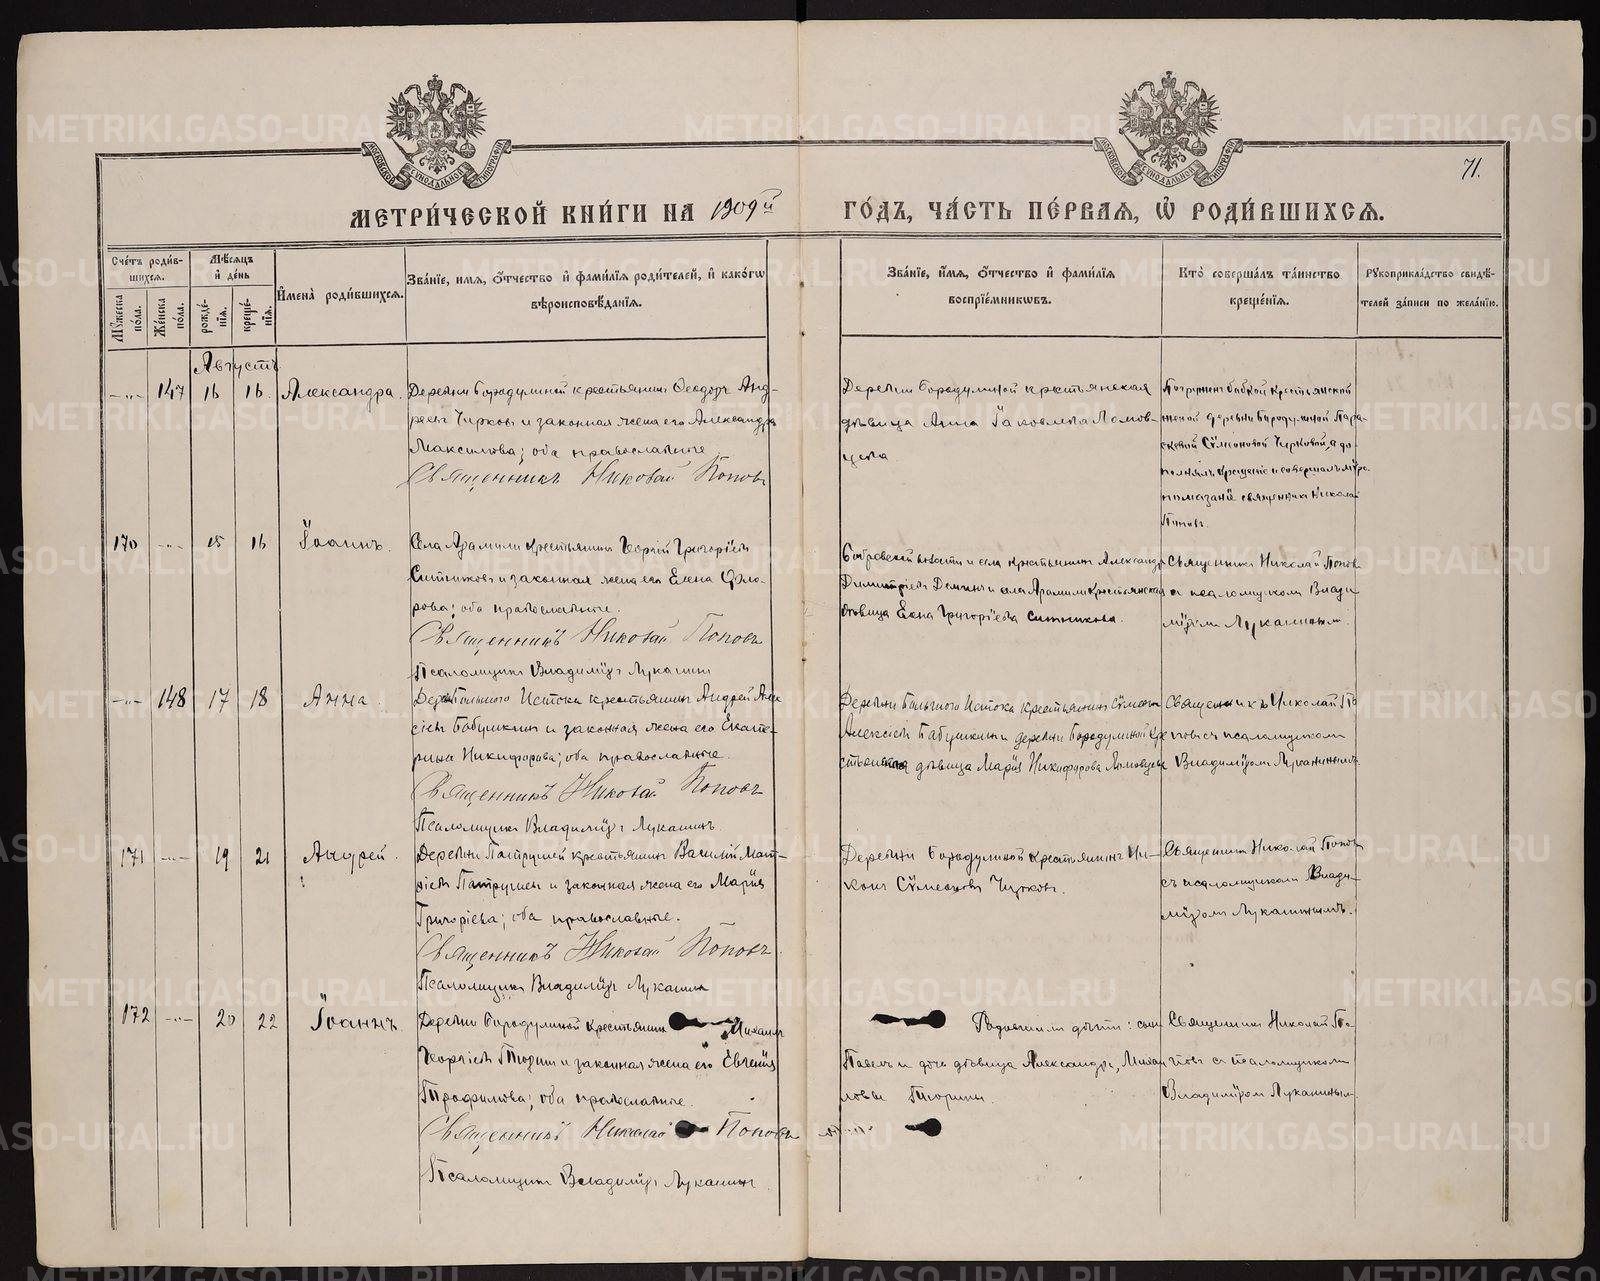 METRIKI.GASO-URAL.RU
МОСКОВСКОЙ СѴНОДАЛЬНОЙ ТИПОГРАФІИ
МОСКОВСКОЙ СѴНОДАЛЬНОЙ ТИПОГРАФІИ
71.
МЕТРИ́ЧЕСКОЙ КНИ́ГИ НА 1909й
ГО́ДЪ, ЧА́СТЬ ПЕ́РВАЯ, Ѽ РОДИ́ВШИХСЯ.
Сче́тъ роди́вшихся.
Мѣ́сяцъ и де́нь
Му́жеска по́ла.
Же́нска по́ла.
рожде́нія.
креще́нія.
И́мена роди́вшихся.
Зва́ніе, имя, ѻ́тчество и фами́лія роди́телей, и како́гѡ
вѣроисповѣ́данія.
Зва́ніе, и́мя, ѻ́тчество и фами́лія
воспріе́мникѡвъ.
Кто̀ соверша́лъ та́инство
креще́нія.
Рꙋкоприкла́дство свидѣ́-
телей за́писи по жела́нію.
Августъ
-„- 147 16 16. Александра.
Деревни Бородулиной крестьянинъ Ѳеодоръ Анд-
реевъ Чирковъ и законная жена его Александра
Максимова; оба православные
Священникъ Николай Поповъ
Деревни Бородулиной крестьянская
дѣвица Анна Іаковлева Ломов-
цева
Погружен бабкой крестьянской
женой деревни Бородулиной Пара-
скевой Сѵмеоновой Чирковой, а до-
полнялъ крещеніе и совершалъ мѵро-
помазаніе священникъ Николай
Поповъ.
170 -„- 15 16 Іоаннъ.
Села Арамили крестьянинъ Георгій Григоріевъ
Ситниковъ и законная жена его Елена Фло-
рова; оба православные.
Священникъ Николай Поповъ
Псаломщикъ Владимїръ Луканинъ
Бобровской волости и села крестьянинъ Александръ
Димитріевъ Деминъ и села Арамили крестьянская
дѣвица Елена Григоріева Ситникова.
Священникъ Николай Поповъ
съ псаломщикомъ Влади-
мїромъ Луканинымъ
-„- 148 17 18 Анна.
Деревни Большого Истока крестьянинъ Андрей Алек-
сіевъ Бабушкинъ и законная жена его Екате-
рина Никифорова; оба православные.
Священникъ Николай Поповъ
Псаломщикъ Владимїръ Луканинъ
Деревни Большого Истока крестьянинъ Сѵмеонъ
Алексіевъ Бабушкинъ и деревни Бородулиной кре-
стьянская дѣвица Марія Никифорова Ломовцева
Священникъ Николай По-
повъ съ псаломщикомъ
Владимїромъ Луканинымъ.
171 -„- 19 21 Андрей.
Деревни Патрушей крестьянинъ Василій Мат-
віевъ Патрушевъ и законная жена его Марія
Григоріева; оба православные.
Священникъ Николай Поповъ
Псаломщикъ Владимїръ Луканинъ
Деревни Бородулиной крестьянинъ Ни-
конъ Сѵмеоновъ Чирковъ.
Священникъ Николай Поповъ
съ псаломщикомъ Влади-
мїромъ Луканинымъ.
172 -„- 20 22 Іоаннъ
Деревни Бородулиной крестьянинъ Михаилъ
Георгіевъ Тюринъ и законная жена его Евгенія
Трофимова; оба православные.
Священникъ Николай Поповъ
Псаломщикъ Владимїръ Луканинъ.
дѣти: сынъ
Павелъ и дочь дѣвица Александра, Михаи-
ловы Тюрины.
Священникъ Николай По-
повъ съ псаломщикомъ
Владимїромъ Луканинымъ.